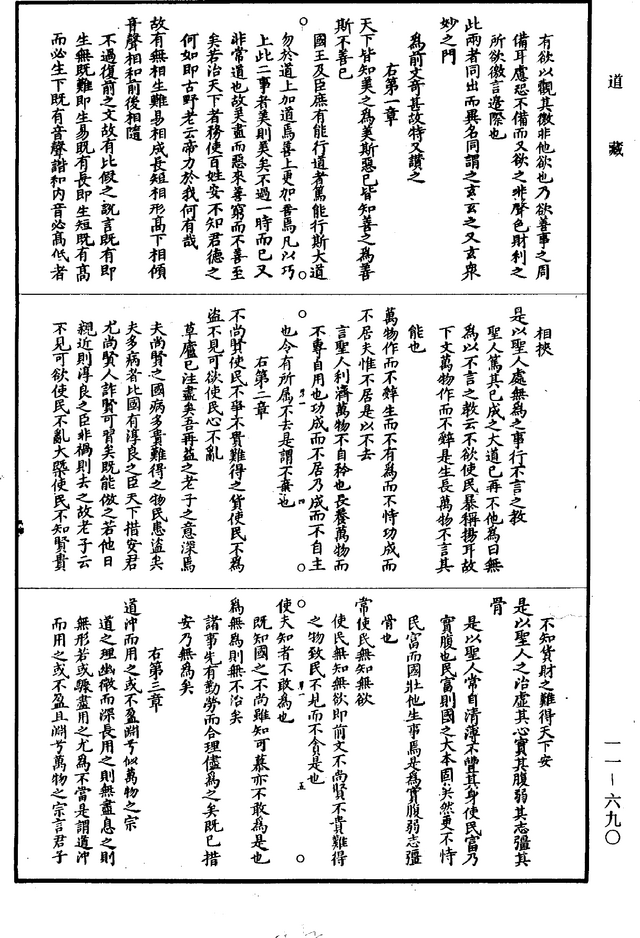 道藏
有欲以觀其徼非他欲也乃欲善事之周
備耳慮恐不備而又欲之非聲色財利之
所欲徼言邊際也
此兩者同出而異名同謂之玄玄之又玄衆
妙之門
為前文奇甚故特又讚之
右第一章
天下皆知美之為美斯惡已皆知善之為善
斯不善已
國王及臣庶有能行道者篤能行斯大道
勿於道上加道焉善上更加善焉凡以巧
上此二事者美則美矣不過一時而已又
非常道也故美盡而惡來善窮而不善至
矣若治天下者務使百姓安不知君德之
何如即古野老云帝力於我何有哉
故有無相生難易相成長短相形高下相傾
音聲相和前後相隨
不過復前之文故有比假之說言既有即
生無既難即生易既有長即生短既有高
而必生下既有音聲諧和內音必高低者
相挾
是以聖人處無為之事行不言之教
聖人篤其已成之大道已再不他為曰無
為以不言之教云不欲使民暴稱揚耳故
下文萬物作而不辭是生長萬物不言其
能也
萬物作而不辭生而不有為而不恃功成而
不居夫惟不居是以不去
言聖人利濟萬物不自矜也長養萬物而
不專自用也功成而不居乃成而不自主
也令有所屬不去是謂不棄也
右第二章
不尚賢使民不爭不貴難得之貨使民不為
盜不見可欲使民心不亂
草廬已注盡矣吾再益之老子之意深為
夫尚賢之國病多貴難得之物民患盜矣
夫多病者比國有淳良之臣天下措安君
尤尚賢人詐賢可習矣既能倣之若他日
親近則淳良之臣非禍則去之故老子云
不見可欲使民不亂大槩使民不知賢貴
不知貨財之難得天下安
是以聖人之治虛其心實其腹弱其志彊其
骨
是以聖人常自清薄不豐其身使民富乃
實腹也民富則國之大本固矣然更不恃
民富而國壯他生事焉是為實腹弱志彊
骨也
常使民無知無欲
使民無知無欲即前文不尚賢不貴難得
之物致民不見而不貪是也
使夫知者不敢為也
既知國之不尚雖知可慕亦不敢為是也
為無為則無不治矣
諸事先有勤勞而合理儘為之矣既已措
安乃無為矣
右第三章
道沖而用之或不盈淵兮似萬物之宗
道之理幽微而深長用之則無盡息之則
無形若或驟盡用之尤為不當是謂道沖
而用之或不盈且淵兮萬物之宗言君子
一一—六九〇